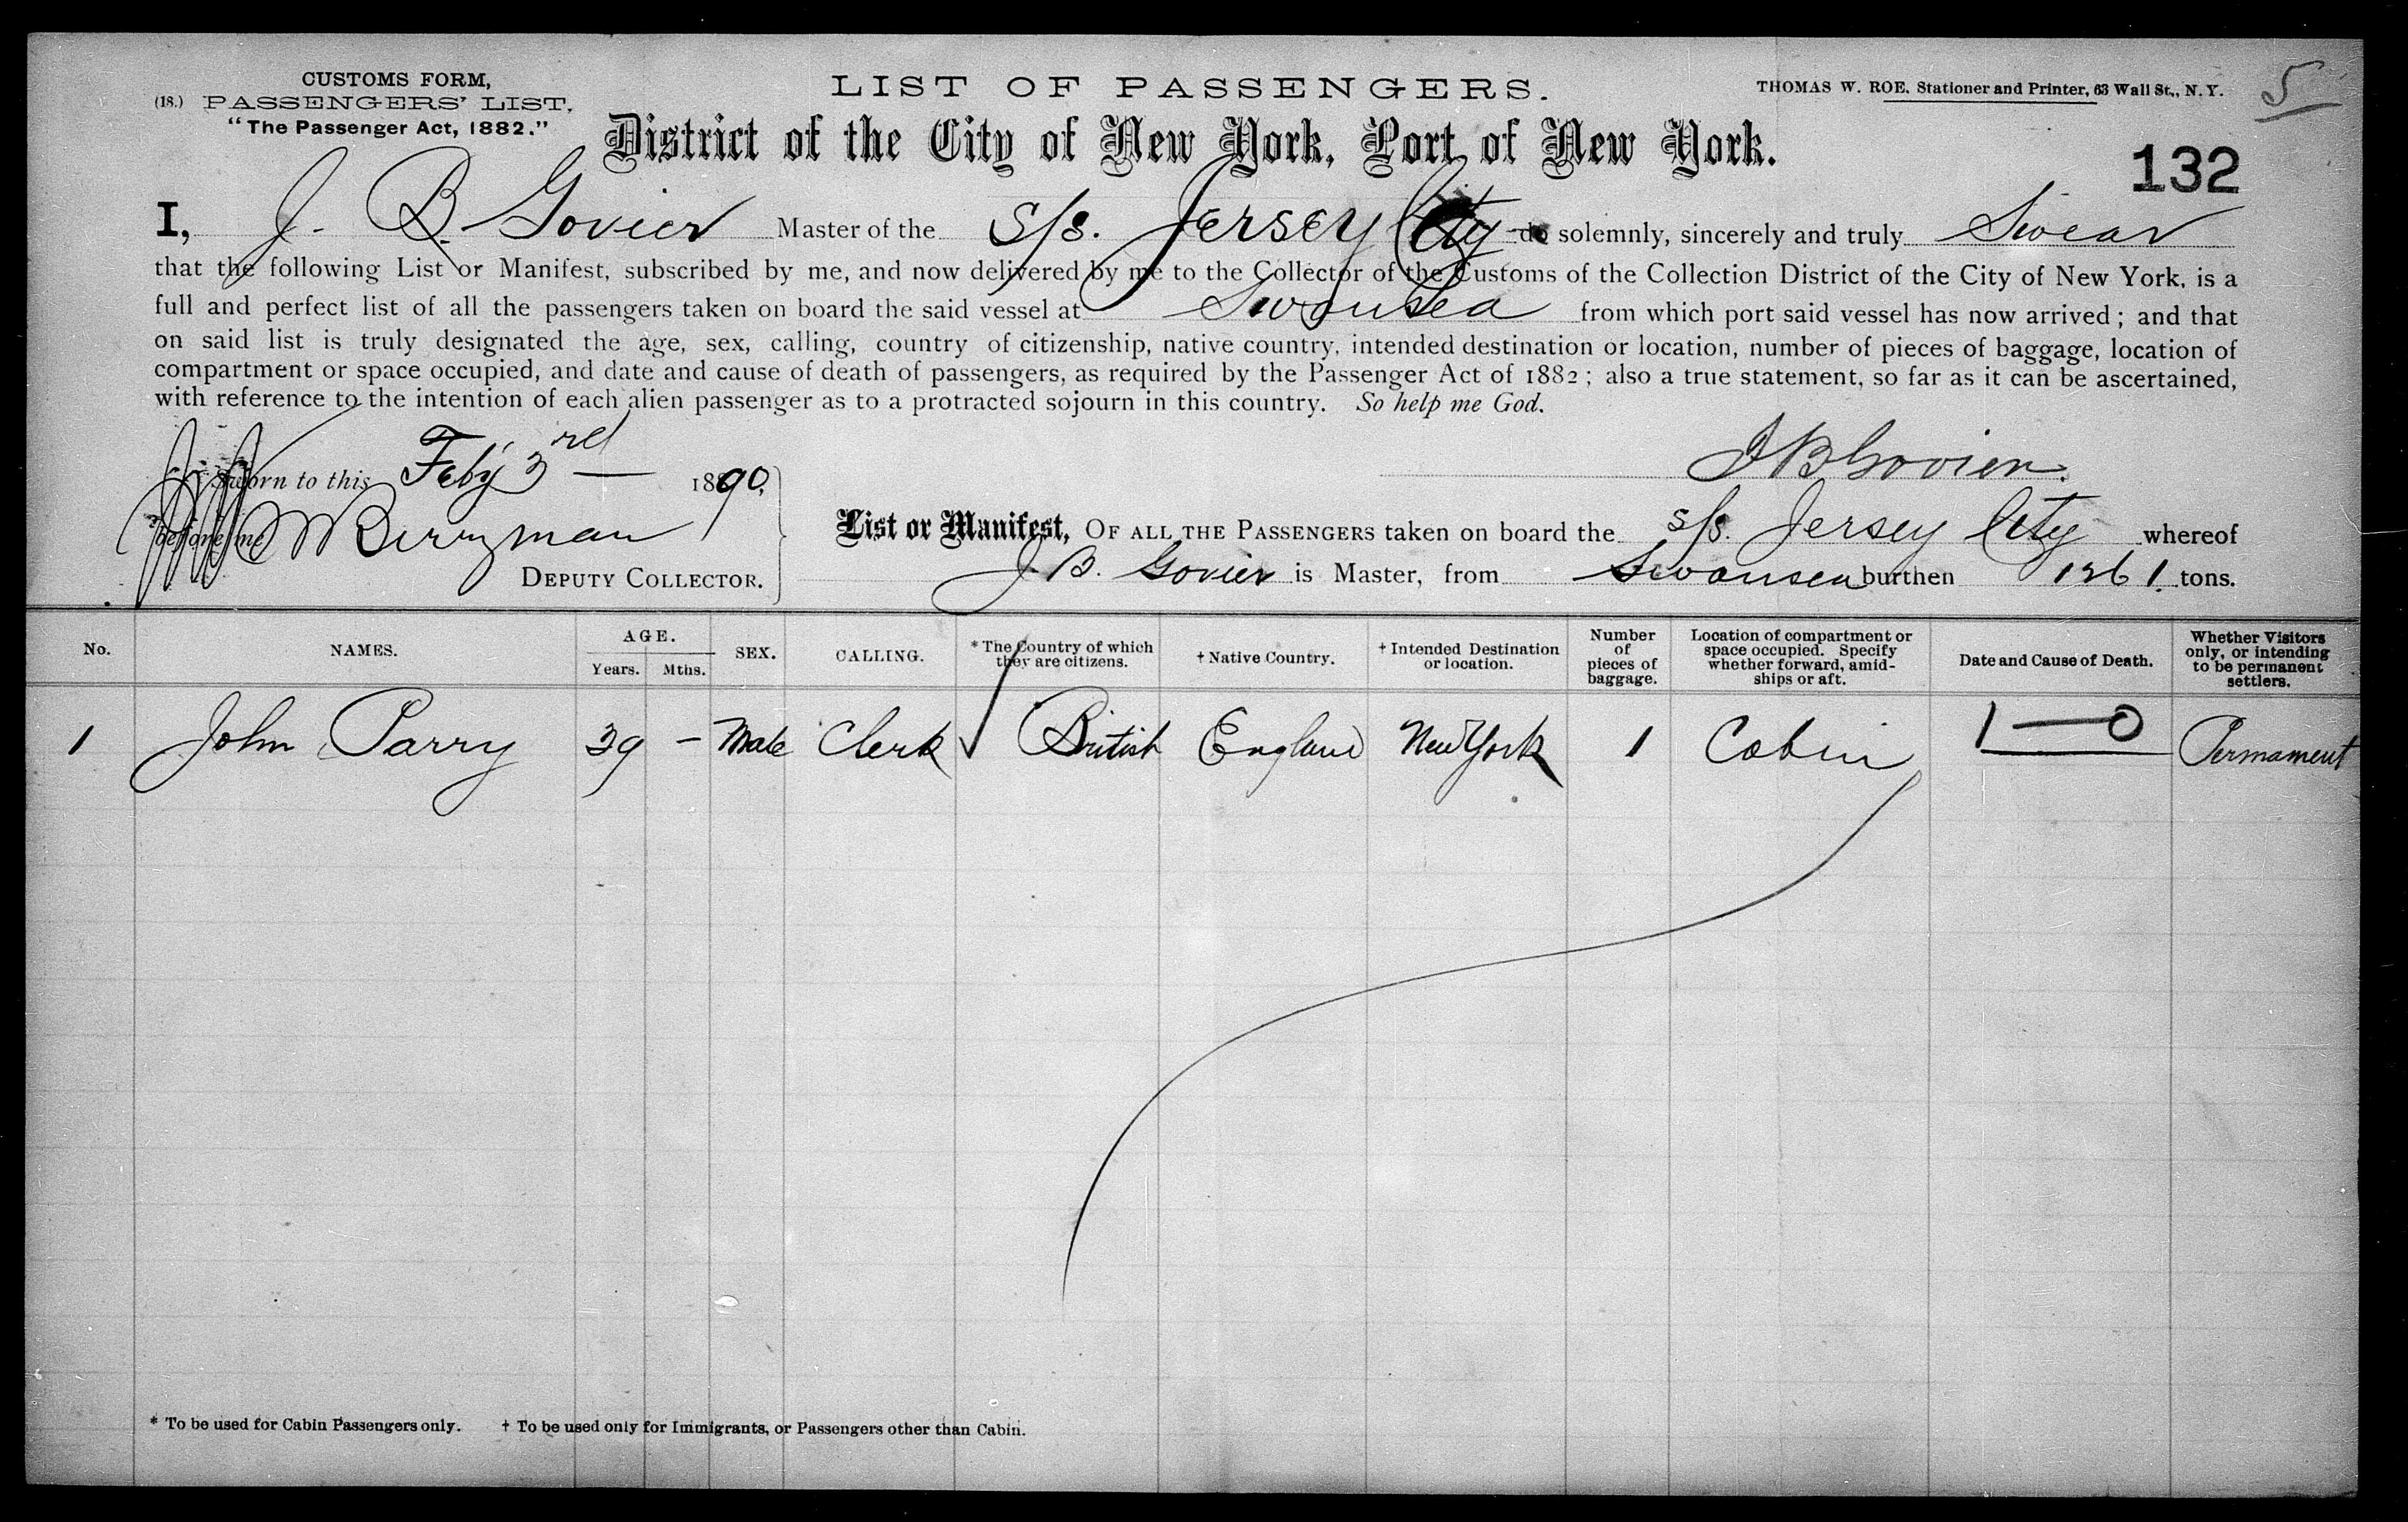 CUSTOMS FORM,
(18.) PASSENGERS' LIST,
"The Passenger Act, 1882."
LIST OF PASSENGERS.
THOMAS W. ROE, Stationer and Printer, 63 Wall St., N.Y.
5
District of the City of New York, Port of New York.
132
I, J. B. Govier Master of the S/S. Jersey City do solemnly, sincerely and truly Swear
that the following List or Manifest, subscribed by me, and now delivered by me to the Collector of the Customs of the Collection District of the City of New York, is a
full and perfect list of all the passengers taken on board the said vessel at Swansea from which port said vessel has now arrived; and that
on said list is truly designated the age, sex, calling, country of citizenship, native country, intended destination or location, number of pieces of baggage, location of
compartment or space occupied, and date and cause of death of passengers, as required by the Passenger Act of 1882; also a true statement, so far as it can be ascertained,
with reference to the intention of each alien passenger as to a protracted sojourn in this country. So help me God.
Sworn to this Feby 3rd 1890.
J B Govier.
before me Berryman
DEPUTY COLLECTOR.
List or Manifest, OF ALL THE PASSENGERS taken on board the s/s. Jersey City whereof
J. B. Govier is Master, from Swansea burthen 1261 tons.
No. NAMES. AGE. Years. Mths. SEX. CALLING. * The Country of which they are citizens. † Native Country. † Intended Destination or location. Number of pieces of baggage. Location of compartment or space occupied. Specify whether forward, amid-ships or aft. Date and Cause of Death. Whether Visitors only, or intending to be permanent settlers.
1 John Parry 39 – Male Clerk British England New York 1 Cabin 1—0 Permament
* To be used for Cabin Passengers only. † To be used only for Immigrants, or Passengers other than Cabin.